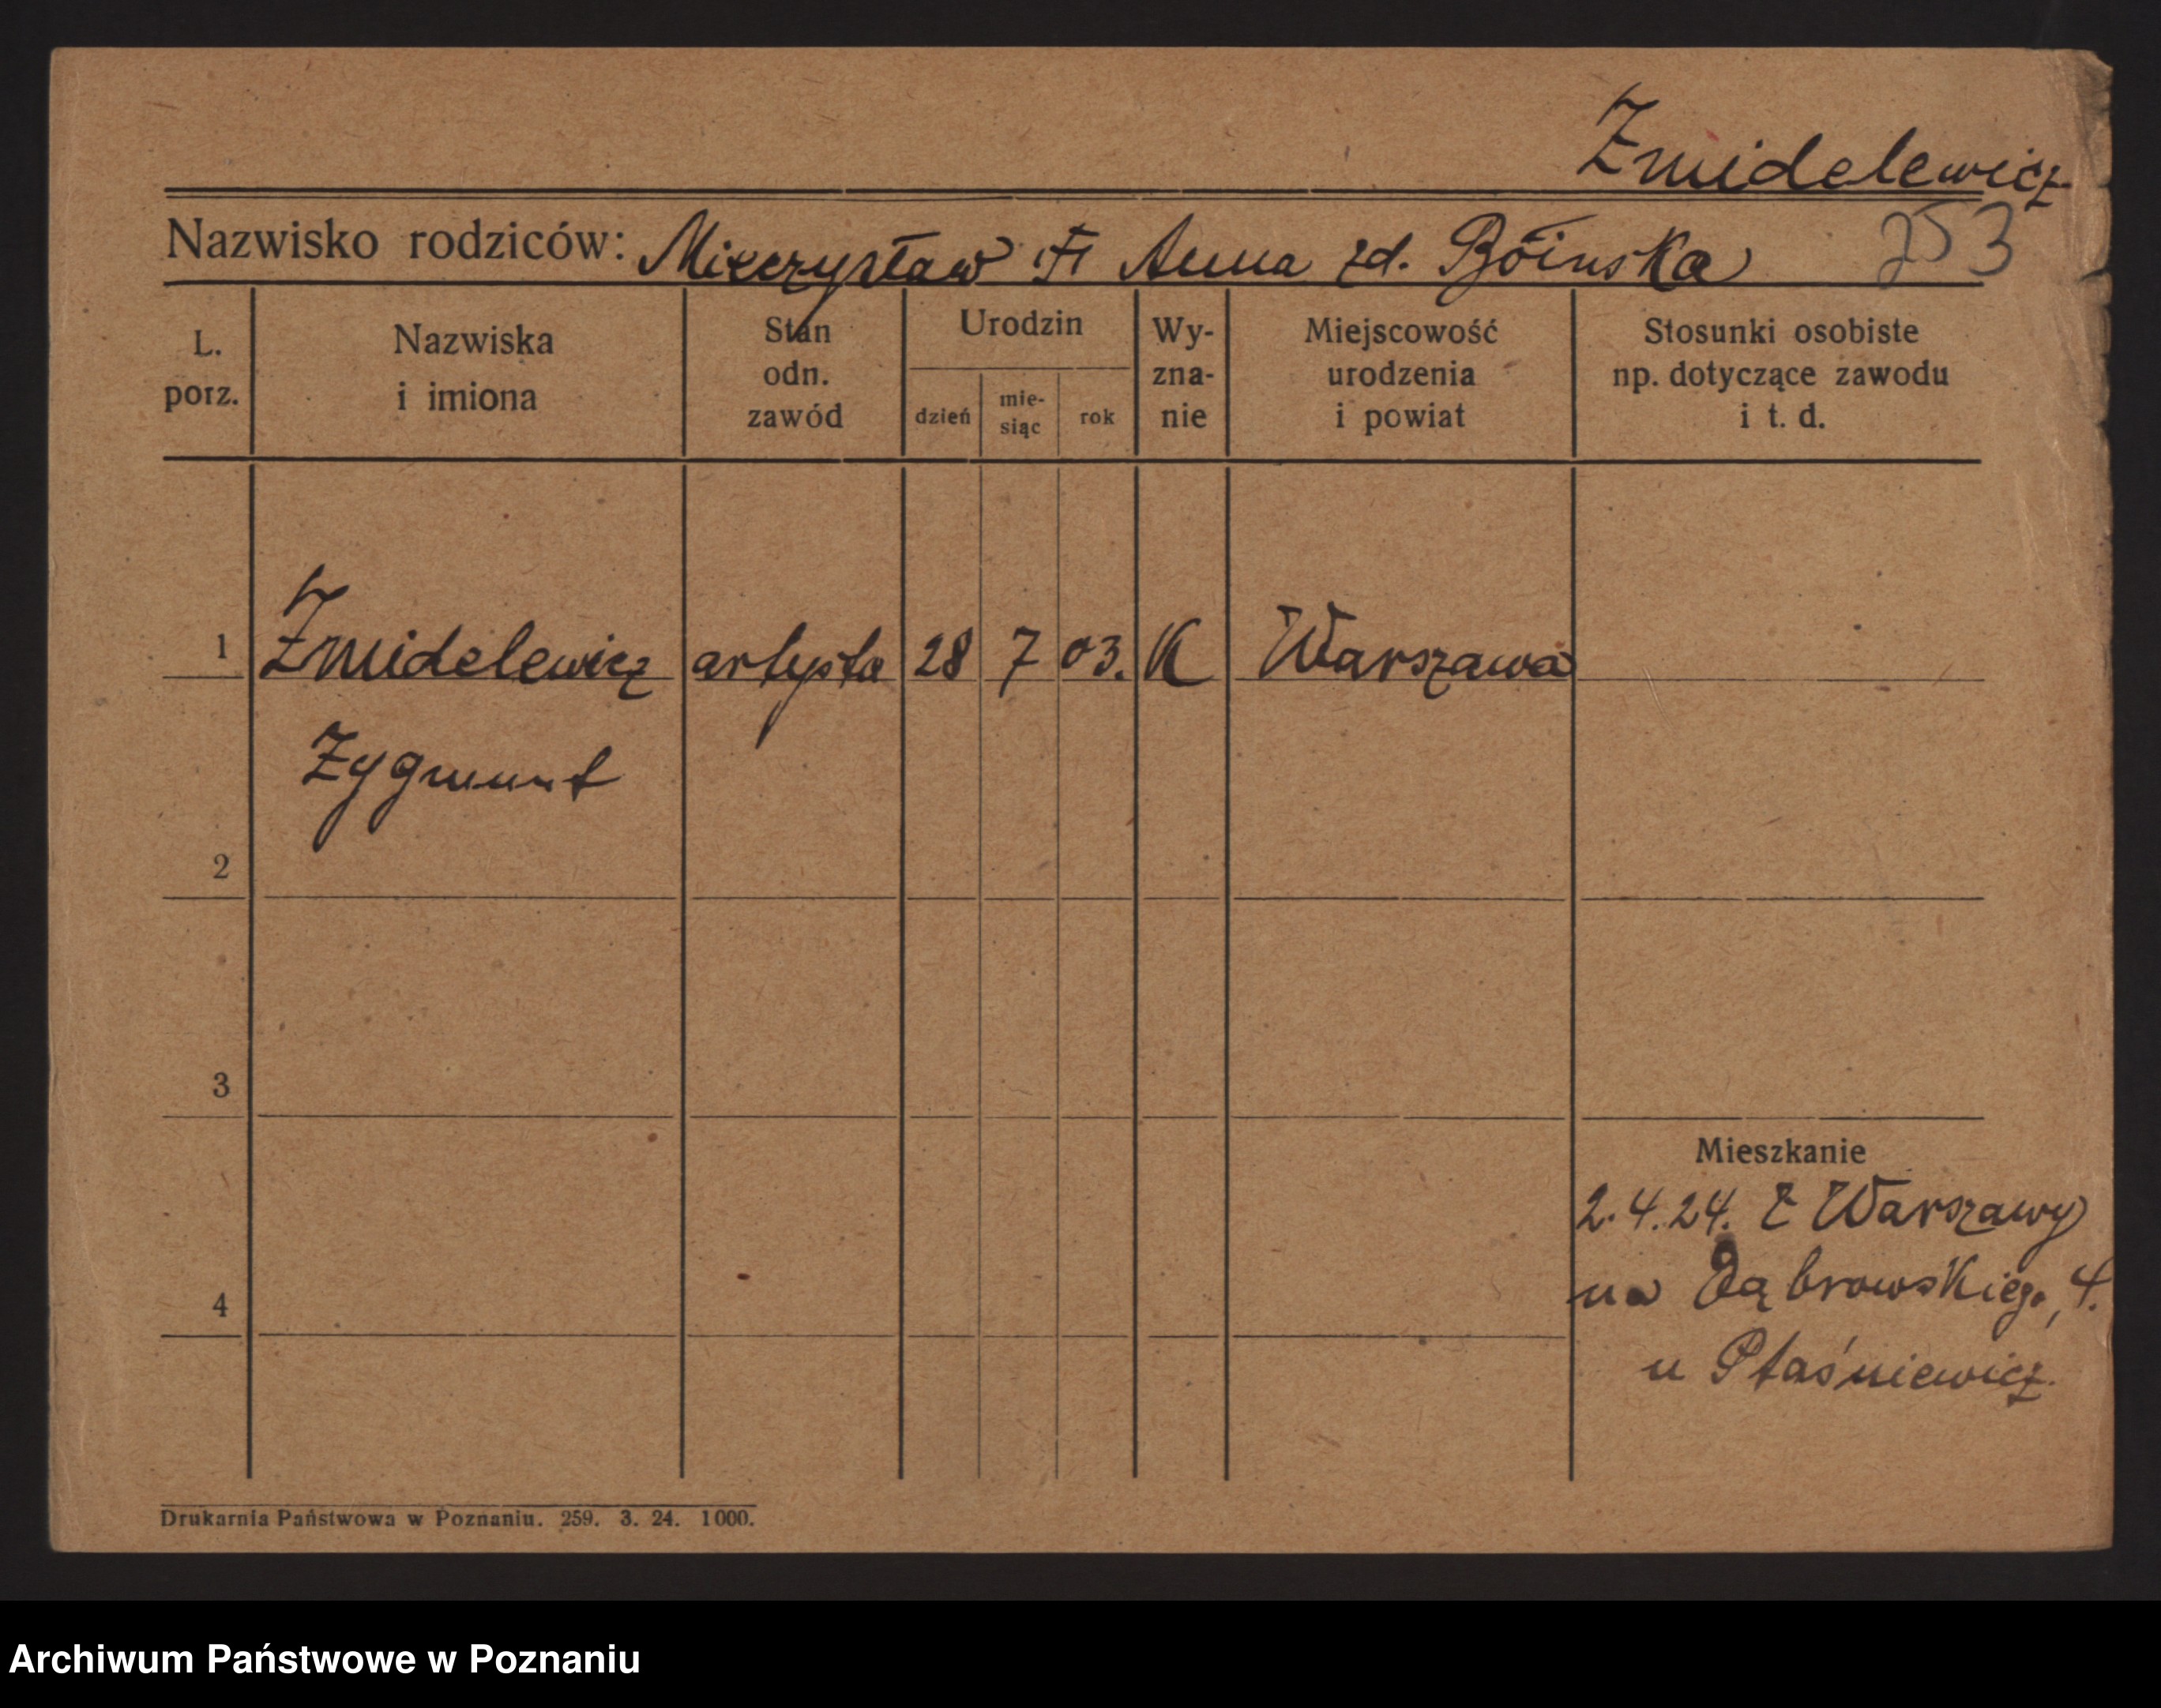 Żmidelewicz
Nazwisko rodziców: Mieczysław Anna zd. Bóinska 253
L. porz.
Nazwiska i imiona
Stan odn. zawód
Urodzin
dzień
mie-siąc
rok
Wy-zna-nie
Miejscowość urodzenia i powiat
Stosunki osobiste np. dotyczące zawodu i t. d.
1 Żmidelewicz artysta 28 7 03. K Warszawa
Zygmunt
2
3
Mieszkanie
2.4.24. Z Warszawy
na Dąbrowskiego, 4.
4
u Ptaśniewicz.
Drukarnia Państwowa w Poznaniu. 259. 3. 24. 1000.
Archiwum Państwowe w Poznaniu